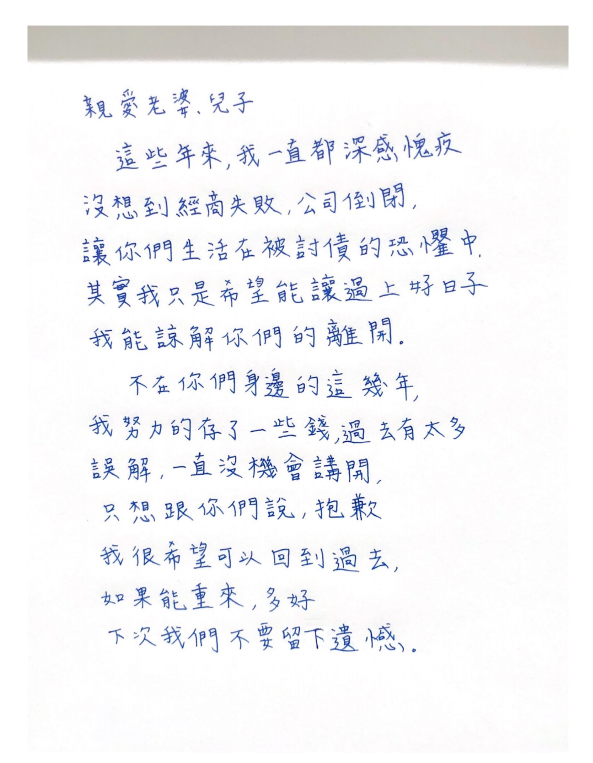 親愛老婆、兒子
這些年來,我一直都深感愧疚
沒想到經商失敗,公司倒閉,
讓你們生活在被討債的恐懼中.
其實我只是希望能讓過上好日子
我能諒解你們的離開.
不在你們身邊的這幾年,
我努力的存了一些錢,過去有太多
誤解,一直沒機會講開,
只想跟你們說,抱歉
我很希望可以回到過去,
如果能重來,多好
下次我們不要留下遺憾、.